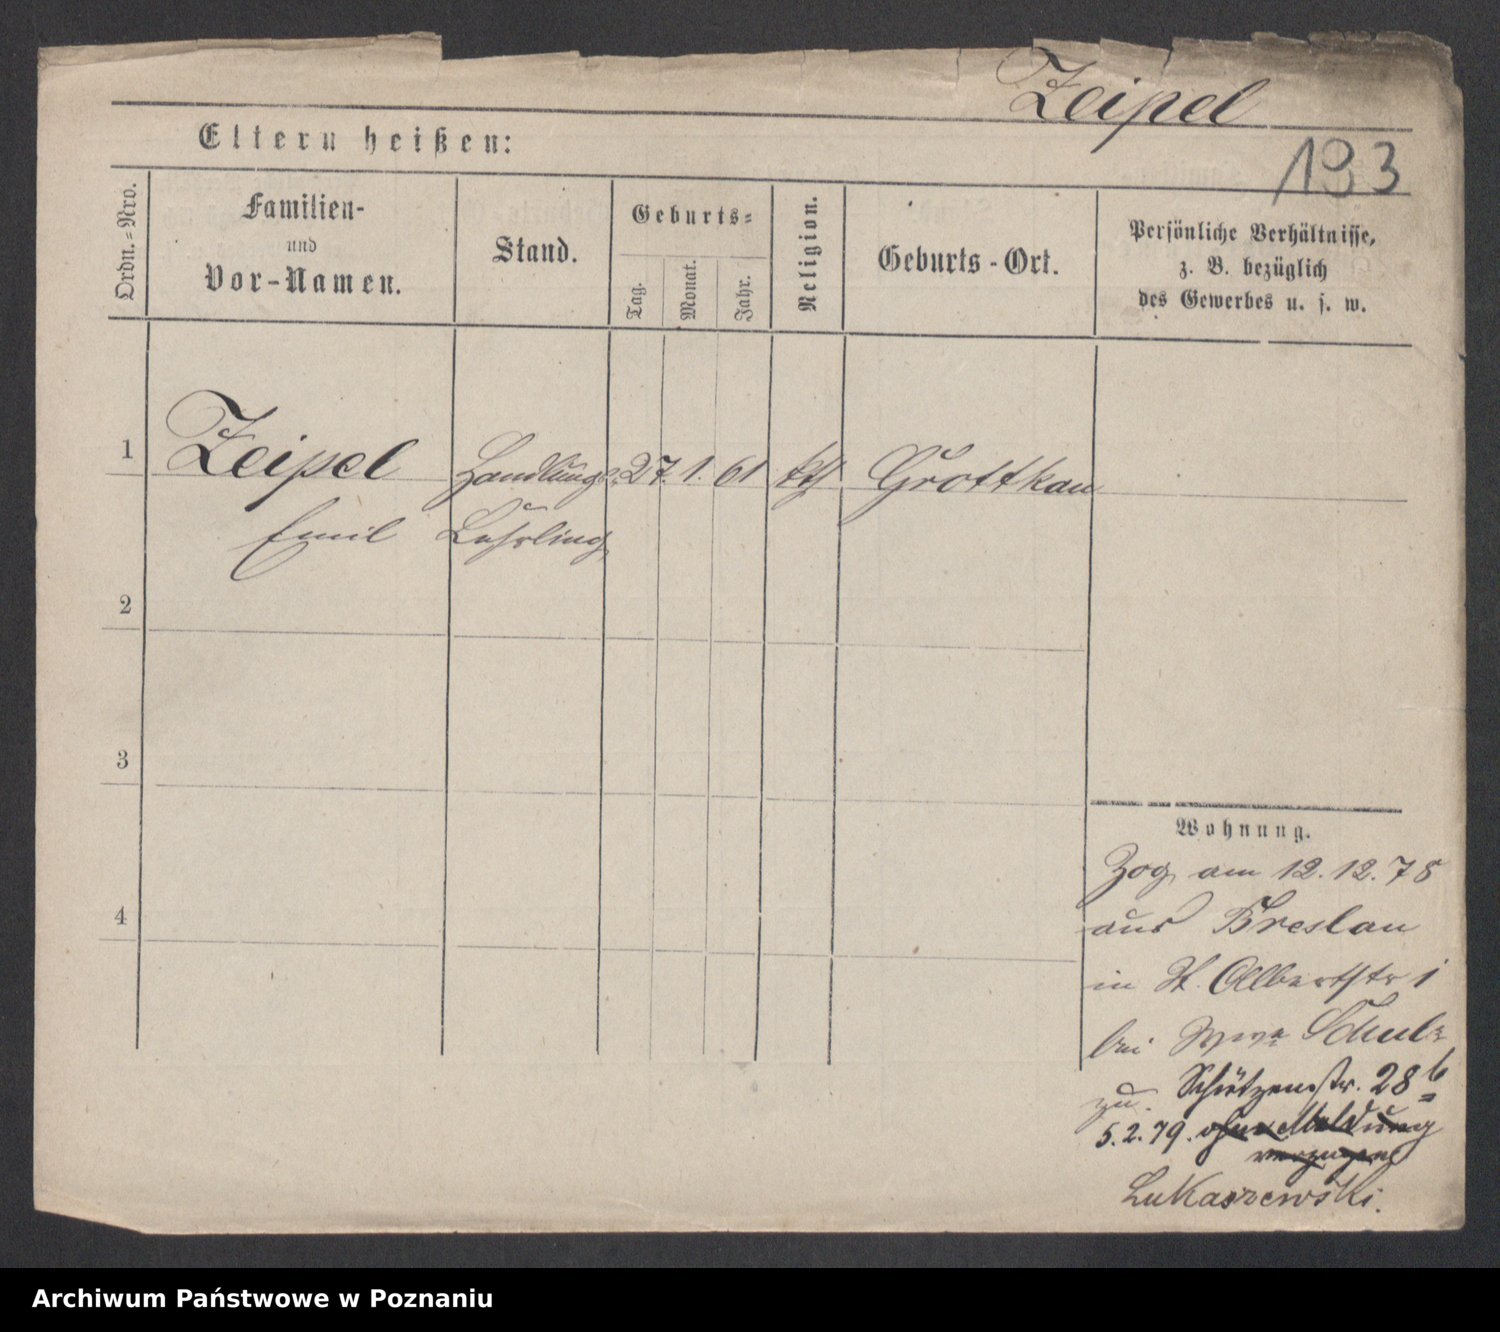 Zeipel
Eltern heißen:
193
Ordn.-Nro.
Familien-
und
Vor-Namen.
Stand.
Geburts-
Tag.
Monat.
Jahr.
Religion.
Geburts-Ort.
Persönliche Verhältnisse,
z. B. bezüglich
des Gewerbes u. s. w.
1
Zeipel Handlungs- 27. 1. 61 kth Grottkau
Emil Lehrling
2
3
4
Wohnung.
Zog am 12.12.78
aus Breslau
in St. Albertstr 1
bei Wwe Schul-
zu. Schützenstr. 28b
5.2.79. ohne Meldung
verzogen
Lukaszewski.
Archiwum Państwowe w Poznaniu